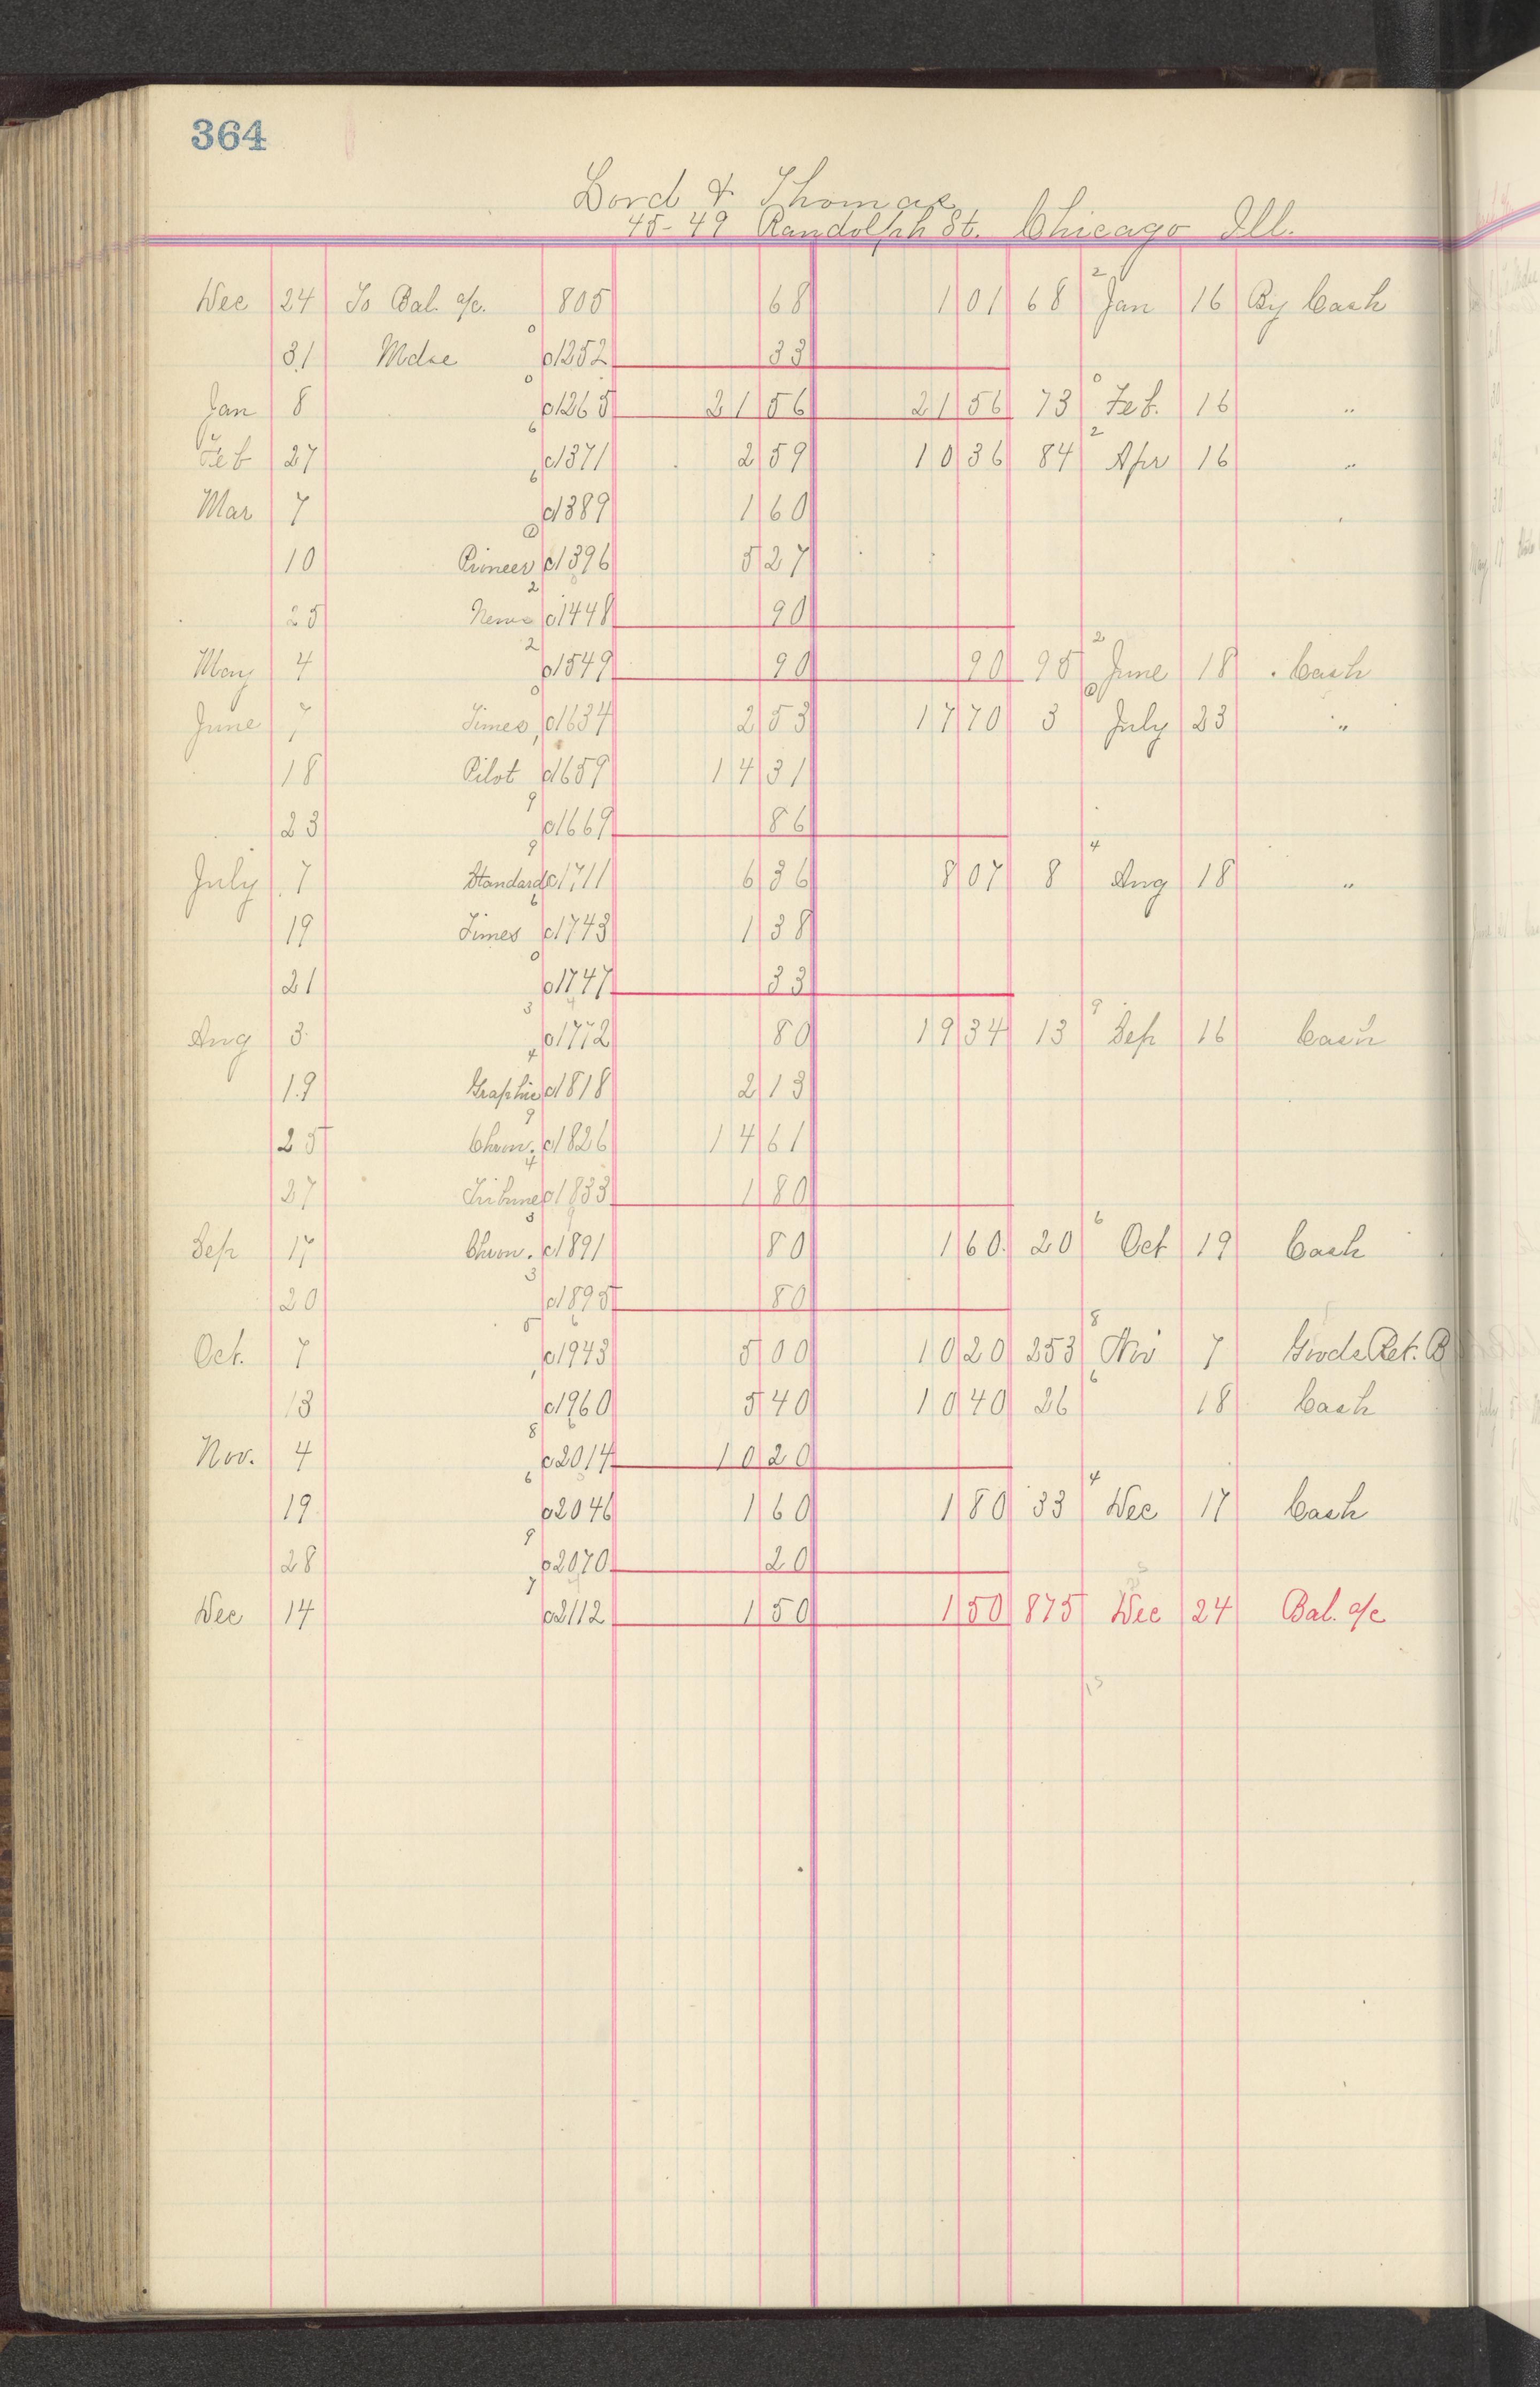 364
Lord & Thomas
45-49 Randolph St. Chicago Ill.
Dec 24 To Bal. a/c. 805 68 1 01 68 2 Jan 16 By Cash
31 Mdse 0 c1252 33
Jan 8 0 c1265 21 56 21 56 73 0 Feb. 16 "
Feb 27 6 c1371 2 59 10 36 84 2 Apr 16 "
Mar 7 6 c1389 1 60
10 Pioneer 0 c1396 5 27
25 News 2 c1448 90
May 4 2 c1549 90 90 95 2 June 18 . Cash
June 7 Times, 0 c1634 2 53 17 70 3 0 July 23 "
18 Pilot c1659 14 31
23 9 c1669 86
July 7 Standard 9 c1711 6 36 8 07 8 4 Aug 18 "
19 Times 6 c1743 1 38
21 0 c1747 33
Aug 3 3 c1772 80 19 34 13 9 Sep 16 Cash
19 Graphic 4 c1818 2 13
25 Chron. 9 c1826 14 61
27 Tribune 4 c1833 1 80
Sep 17 Chron. 3 c1891 80 1 60 20 6 Oct 19 Cash
20 3 c1895 80
Oct. 7 5 c1943 5 00 10 20 253 8 Nov 7 Goods Ret. B
13 c1960 5 40 10 40 26 6 18 Cash
Nov. 4 8 c2014 10 20
19 6 c2046 1 60 1 80 33 4 Dec 17 Cash
28 9 c2070 20
Dec 14 7 c2112 1 50 1 50 875 Dec 24 Bal. a/c